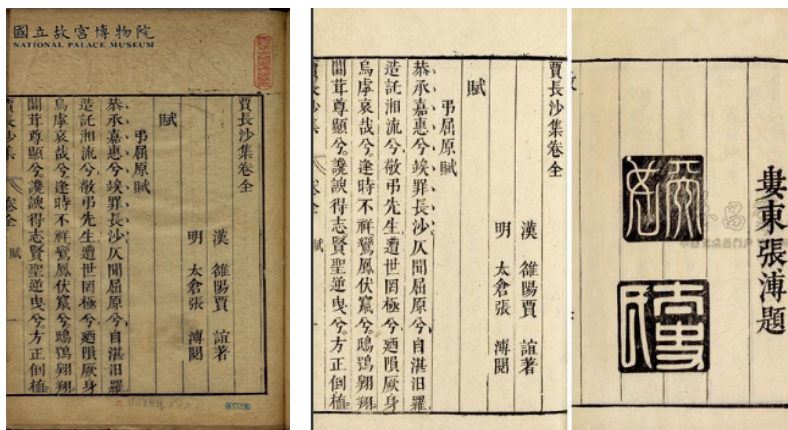 國立故宮博物院
NATIONAL PALACE MUSEUM
賈長沙集卷全
漢 雒陽賈 誼著
明 太倉張 溥閱
賦
弔屈原賦
恭承嘉惠兮竢罪長沙仄聞屈原兮自湛汨羅
造託湘流兮敬弔先生遭世罔極兮廼隕厥身
烏虖哀哉兮逢時不祥鸞鳳伏竄兮鴟鴞翺翔
闒茸尊顯兮讒諛得志賢聖逆曳兮方正倒植
賈長沙集 卷全 賦 一
賈長沙集卷全
漢 雒陽賈 誼著
明 太倉張 溥閱
賦
弔屈原賦
恭承嘉惠兮竢罪長沙仄聞屈原兮自湛汨羅
造託湘流兮敬弔先生遭世罔極兮廼隕厥身
烏虖哀哉兮逢時不祥鸞鳳伏竄兮鴟鴞翺翔
闒茸尊顯兮讒諛得志賢聖逆曳兮方正倒植
賈長沙集 卷全 賦 一
婁東張溥題